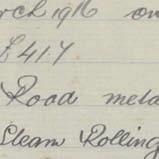 rch 1916 on
£417
Road meta
Steam Rolling